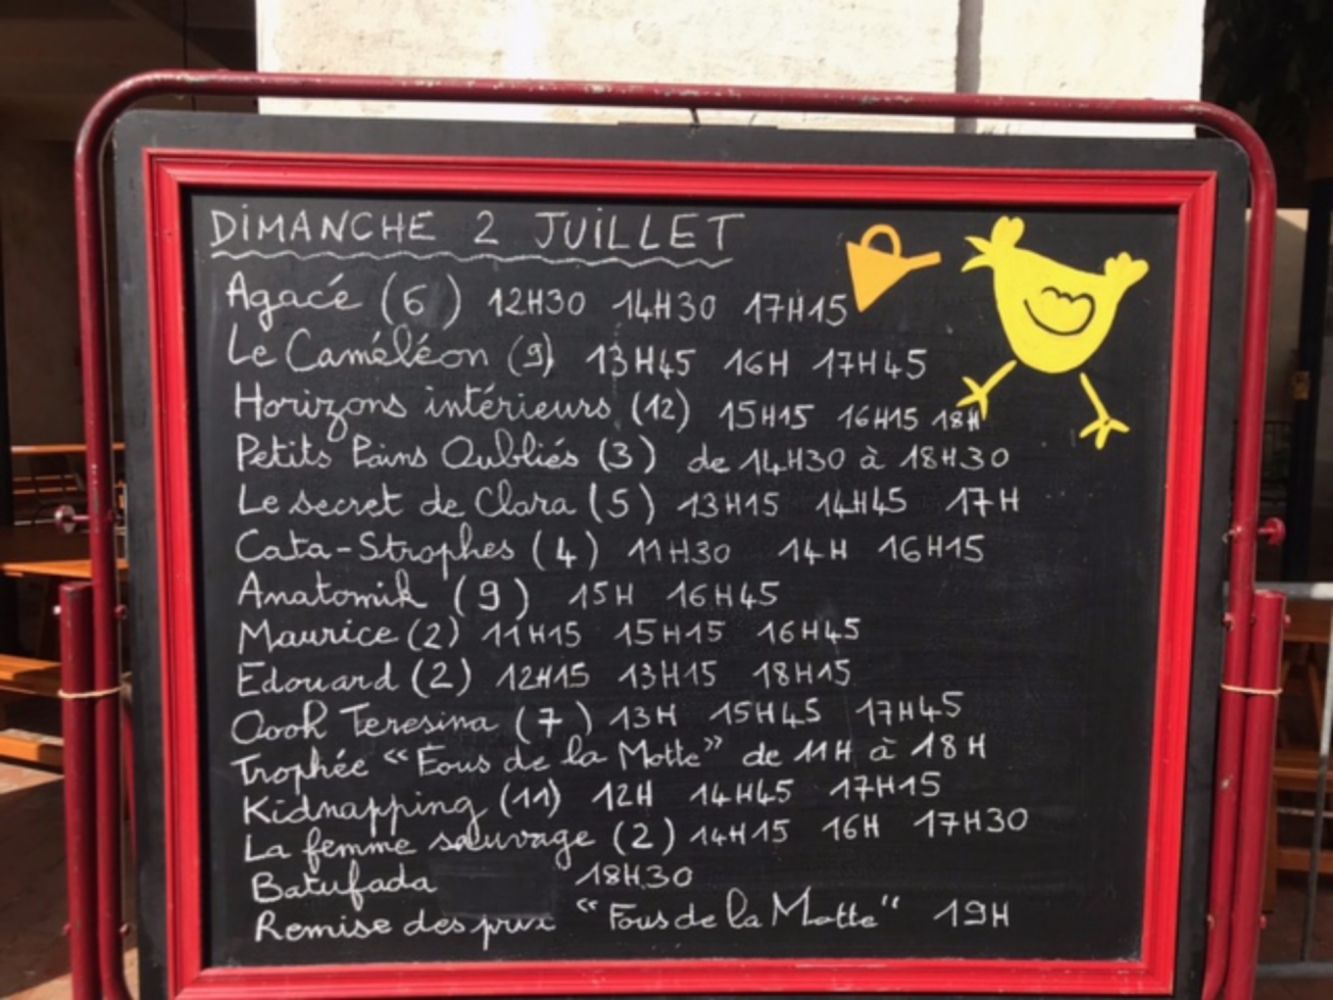 DiMANCHE 2 JUiLLET
Agacé (6) 12H30 14H30 17H15
Le Caméléon (9) 13H45 16H 17H45
Horizons intérieurs (12) 15H15 16H15 18H
Petits Pains Oubliés (3) de 14H30 à 18H30
Le secret de Clara (5) 13H15 14H45 17H
Cata-Strophes (4) 11H30 14H 16H15
Anatomik (9) 15H 16H45
Maurice (2) 11H15 15H15 16H45
Edouard (2) 12H15 13H15 18H15
Oooh Teresina (7) 13H 15H45 17H45
Trophée “Fous de la Motte” de 11H à 18H
Kidnapping (11) 12H 14H45 17H15
La femme sauvage (2) 14H15 16H 17H30
Batufada 18H30
Remise des prix “Fous de la Motte“ 19H